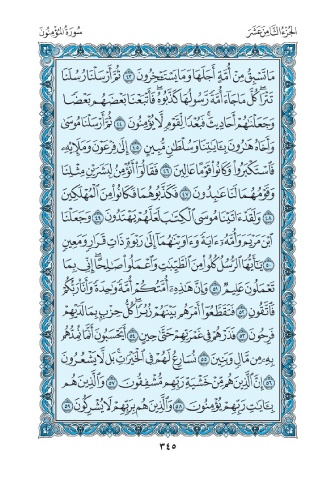 الجُزْءُ الثَّامِنَ عَشَرَ
سُورَةُ المُؤْمِنُونَ
مَا تَسْبِقُ مِنْ أُمَّةٍ أَجَلَهَا وَمَا يَسْتَـْٔخِرُونَ ٤٣ ثُمَّ أَرْسَلْنَا رُسُلَنَا
تَتْرَاۖ كُلَّ مَا جَآءَ أُمَّةً رَّسُولُهَا كَذَّبُوهُۚ فَأَتْبَعْنَا بَعْضَهُم بَعْضًا
وَجَعَلْنَٰهُمْ أَحَادِيثَۚ فَبُعْدًا لِّقَوْمٍ لَّا يُؤْمِنُونَ ٤٤ ثُمَّ أَرْسَلْنَا مُوسَىٰ
وَأَخَاهُ هَٰرُونَ بِـَٔايَٰتِنَا وَسُلْطَٰنٍ مُّبِينٍ ٤٥ إِلَىٰ فِرْعَوْنَ وَمَلَإِيْهِۦ
فَٱسْتَكْبَرُوا۟ وَكَانُوا۟ قَوْمًا عَالِينَ ٤٦ فَقَالُوٓا۟ أَنُؤْمِنُ لِبَشَرَيْنِ مِثْلِنَا
وَقَوْمُهُمَا لَنَا عَٰبِدُونَ ٤٧ فَكَذَّبُوهُمَا فَكَانُوا۟ مِنَ ٱلْمُهْلَكِينَ
٤٨ وَلَقَدْ ءَاتَيْنَا مُوسَى ٱلْكِتَٰبَ لَعَلَّهُمْ يَهْتَدُونَ ٤٩ وَجَعَلْنَا
ٱبْنَ مَرْيَمَ وَأُمَّهُۥٓ ءَايَةً وَءَاوَيْنَٰهُمَآ إِلَىٰ رَبْوَةٍ ذَاتِ قَرَارٍ وَمَعِينٍ
٥٠ يَٰٓأَيُّهَا ٱلرُّسُلُ كُلُوا۟ مِنَ ٱلطَّيِّبَٰتِ وَٱعْمَلُوا۟ صَٰلِحًاۖ إِنِّى بِمَا
تَعْمَلُونَ عَلِيمٌ ٥١ وَإِنَّ هَٰذِهِۦٓ أُمَّتُكُمْ أُمَّةً وَٰحِدَةً وَأَنَا۠ رَبُّكُمْ
فَٱتَّقُونِ ٥٢ فَتَقَطَّعُوٓا۟ أَمْرَهُم بَيْنَهُمْ زُبُرًاۖ كُلُّ حِزْبٍۭ بِمَا لَدَيْهِمْ
فَرِحُونَ ٥٣ فَذَرْهُمْ فِى غَمْرَتِهِمْ حَتَّىٰ حِينٍ ٥٤ أَيَحْسَبُونَ أَنَّمَا نُمِدُّهُم
بِهِۦ مِن مَّالٍ وَبَنِينَ ٥٥ نُسَارِعُ لَهُمْ فِى ٱلْخَيْرَٰتِۚ بَل لَّا يَشْعُرُونَ
٥٦ إِنَّ ٱلَّذِينَ هُم مِّنْ خَشْيَةِ رَبِّهِم مُّشْفِقُونَ ٥٧ وَٱلَّذِينَ هُم
بِـَٔايَٰتِ رَبِّهِمْ يُؤْمِنُونَ ٥٨ وَٱلَّذِينَ هُم بِرَبِّهِمْ لَا يُشْرِكُونَ ٥٩
٣٤٥